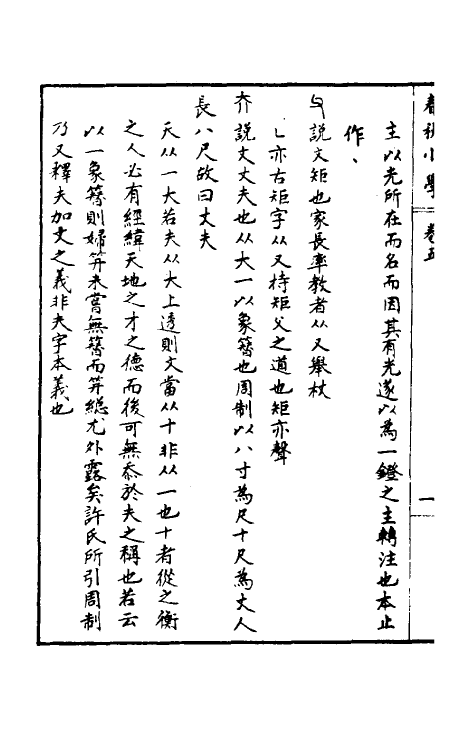 春秋小學 卷五
一
主以光所在而名而因其有光遂以為一鐙之主轉注也本止
作、
説文矩也家長率教者从又舉杖
乚亦古矩字从又持矩父之道也矩亦聲
夰説文丈夫也从大一以象簪也周制以八寸為尺十尺為丈人
長八尺故曰丈夫
天从一大若夫从大上透則文當从十非从一也十者從之衡
之人必有經緯天地之才之德而後可無忝於夫之稱也若云
以一象簪則婦笄未嘗無簪而笄總尤外露矣許氏所引周制
乃又釋夫加丈之義非夫字本義也